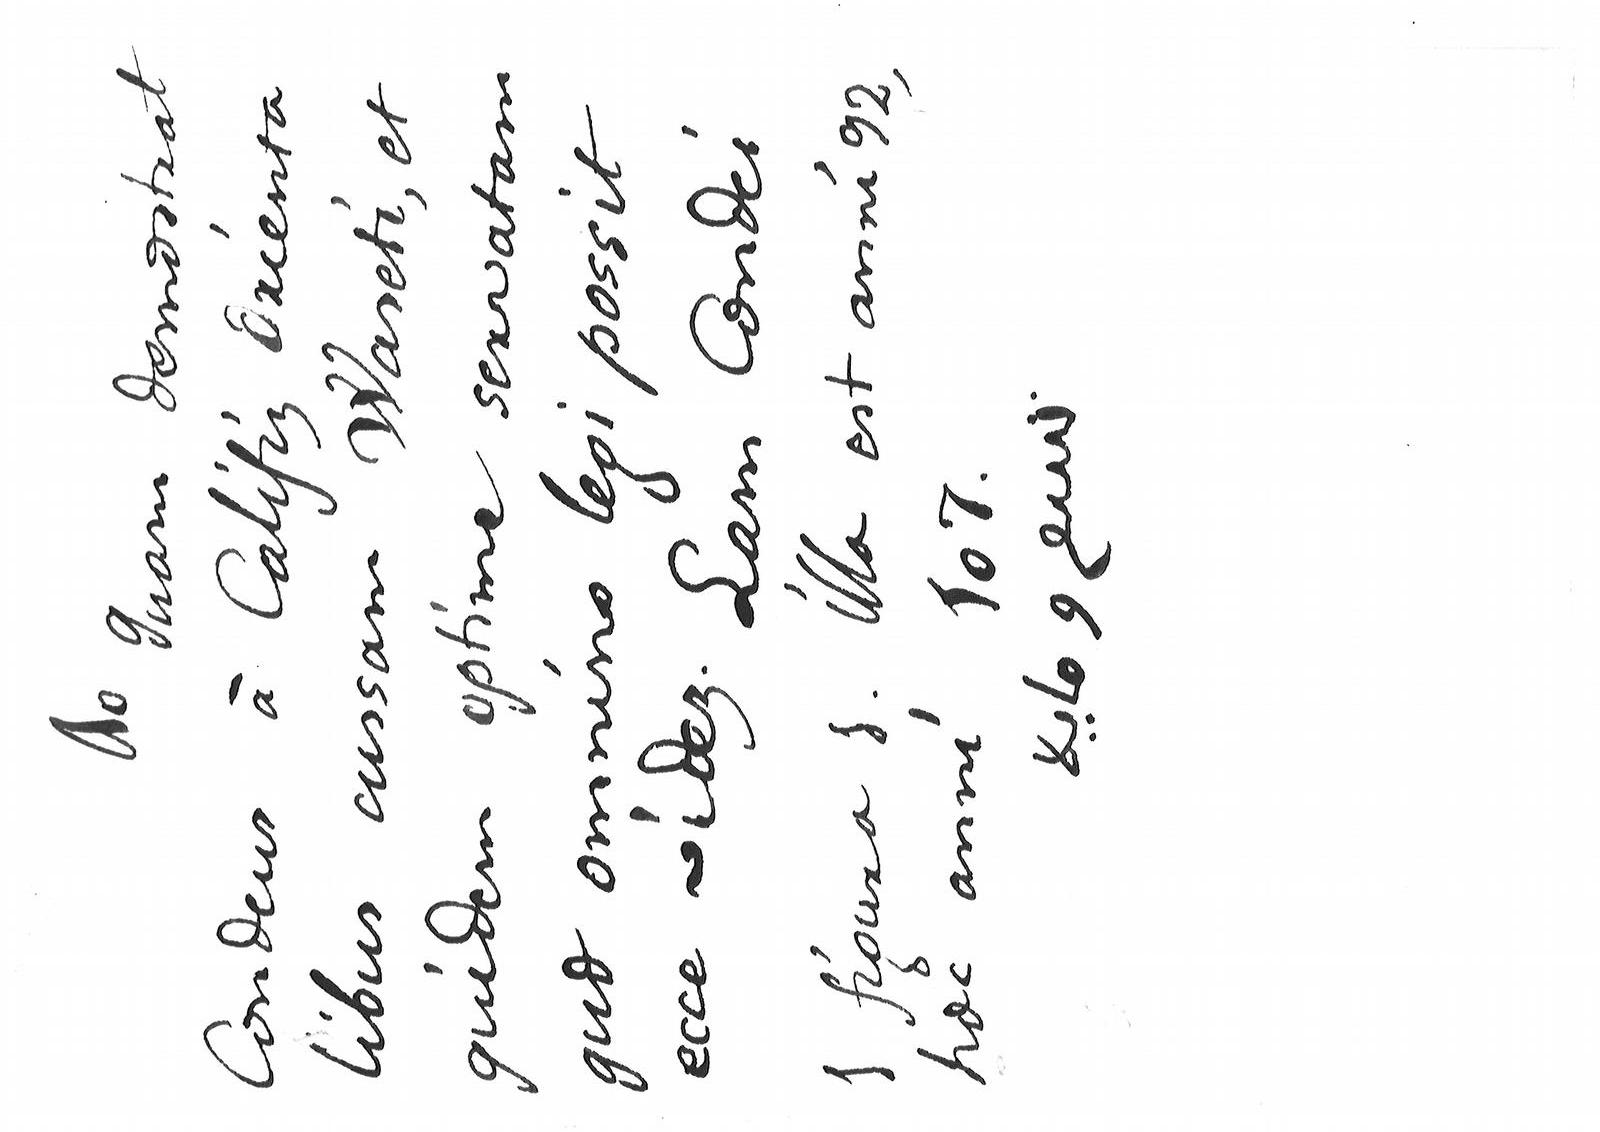 quam demostrat
Condeus à Califis Orienta
libus cussam Waseti, et
quidem optime servatam
omnino legi possit
ecce Condei
figura illa est anni 92,
anni 107.